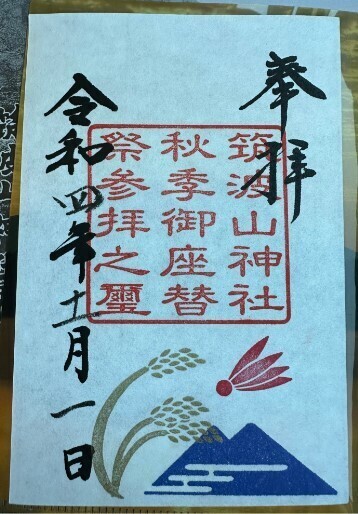 奉拝
筑波山神社
秋季御座替
祭参拝之璽
令和四年十一月一日